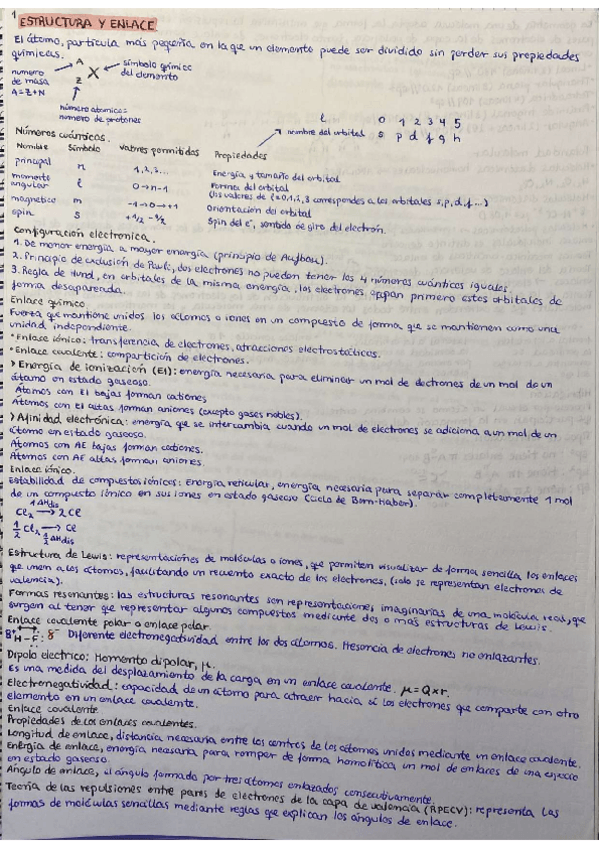 1
ESTRUCTURA Y ENLACE
El átomo, partícula más pequeña en la que un elemento puede ser dividido sin perder sus propiedades
químicas.
numero de masa A=Z+N
A
Z
X
símbolo químico del elemento
número atómico: numero de protones
l 0 1 2 3 4 5
nombre del orbital s p d f g h
Números cuánticos.
Nombre Símbolo Valores permitidos Propiedades
principal n 1,2,3... Energía y tamaño del orbital
momento angular l 0→n-1 Forma del orbital
(los valores de l=0,1,2,3 corresponden a los orbitales s,p,d,f...)
magnetico m -1→0→+1 Orientación del orbital
spin s +1/2 -1/2 Spin del e-, sentido de giro del electrón.
Configuración electronica.
1. De menor energía a mayor energía (principio de Aufbau).
2. Principio de exclusión de Pauli, dos electrones no pueden tener los 4 números cuánticos iguales.
3. Regla de Hund, en orbitales de la misma energía, los electrones ocupan primero estos orbitales de
forma desaparada.
Enlace químico.
Fuerza que mantiene unidos los átomos o iones en un compuesto de forma que se mantienen como una
unidad independiente.
* Enlace iónico: transferencia de electrones, atracciones electrostáticas.
* Enlace covalente: compartición de electrones.
> Energía de ionización (EI): energía necesaria para eliminar un mol de electrones de un mol de un
átomo en estado gaseoso.
Átomos con EI bajas forman cationes
Átomos con EI altas forman aniones (excepto gases nobles).
> Afinidad electrónica: energía que se intercambia cuando un mol de electrones se adiciona a un mol de un
átomo en estado gaseoso.
Átomos con AE bajas forman cationes.
Átomos con AE altas forman aniones.
Enlace iónico.
Estabilidad de compuestos iónicos: Energía reticular, energía necesaria para separar completamente 1 mol
de un compuesto iónico en sus iones en estado gaseoso (Ciclo de Born-Haber).
Cl₂ ΔHdis → 2Cl
1/2 Cl₂ → Cl
1/2 ΔHdis
Estructura de Lewis: representaciones de moléculas o iones, que permiten visualizar de forma sencilla los enlaces
que unen a los átomos, facilitando un recuento exacto de los electrones, (solo se representan electrones de
valencia).
Formas resonantes: las estructuras resonantes son representaciones imaginarias de una molécula real, que
surgen al tener que representar algunos compuestos mediante dos o más estructuras de Lewis.
Enlace covalente polar o enlace polar.
H-F: Diferente electronegatividad entre los dos átomos. Presencia de electrones no enlazantes.
Dipolo electrico: Momento dipolar, μ.
Es una medida del desplazamiento de la carga en un enlace covalente. μ=Q×r.
Electronegatividad: capacidad de un átomo para atraer hacia sí los electrones que comparte con otro
elemento en un enlace covalente.
Enlace covalente
Propiedades de los enlaces covalentes.
Longitud de enlace, distancia necesaria entre los centros de los átomos unidos mediante un enlace covalente.
Energía de enlace, energía necesaria para romper de forma homolítica un mol de enlaces de una especie
en estado gaseoso.
Ángulo de enlace, el ángulo formado por tres átomos enlazados consecutivamente.
Teoría de las repulsiones entre pares de electrones de la capa de valencia (RPECV): representa las
formas de moléculas sencillas mediante reglas que explican los ángulos de enlace.